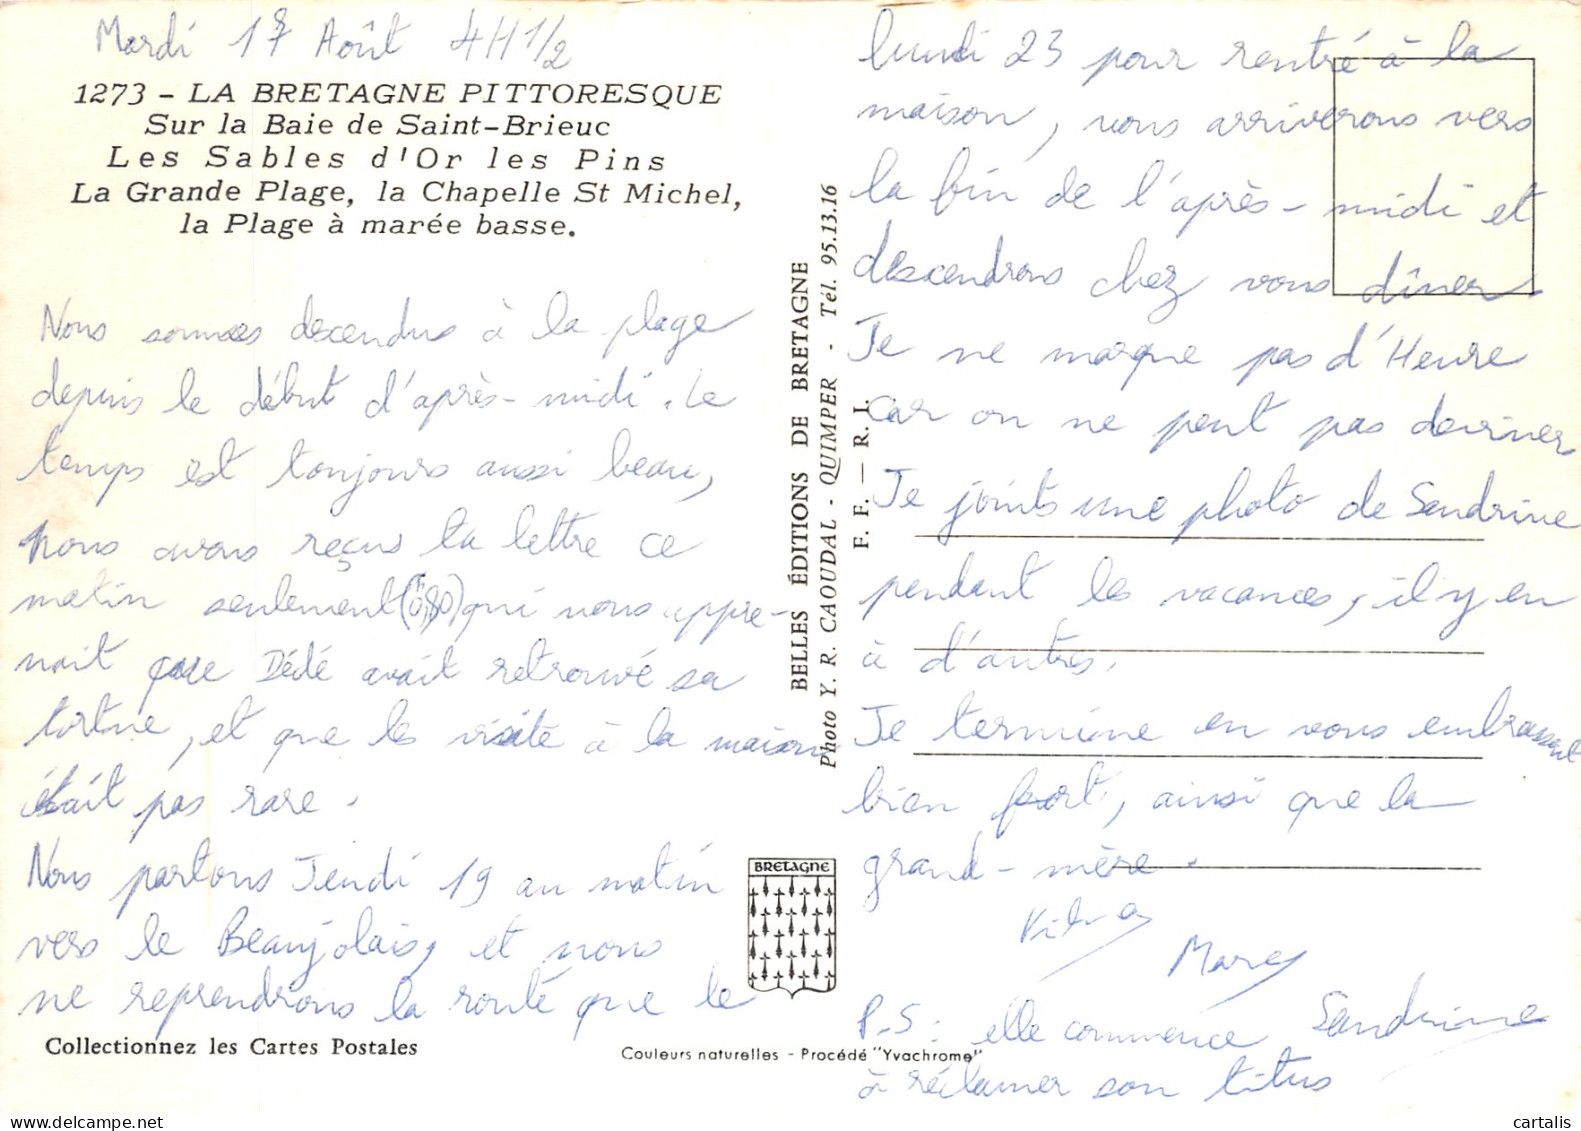 Mardi 17 Août 4H1/2
1273 - LA BRETAGNE PITTORESQUE
Sur la Baie de Saint-Brieuc
Les Sables d'Or les Pins
La Grande Plage, la Chapelle St Michel,
la Plage à marée basse.
Nous sommes descendus à la plage
depuis le début d'après-midi. Le
temps est toujours aussi beau,
nous avons reçus ta lettre ce
matin seulement (0,80) qui nous appre-
nait que Dédé avait retrouvé sa
tortue, et que les visite à la maison
était pas rare.
Nous partons Jeudi 19 au matin
vers le Beaujolais, et nous
ne reprendrons la route que le
Collectionnez les Cartes Postales
BELLES ÉDITIONS DE BRETAGNE
Photo Y. R. CAOUDAL - QUIMPER - Tél. 95.13.16
F. F. — R. I.
BRETAGNE
Couleurs naturelles - Procédé "Yvachrome"
lundi 23 pour rentré à la
maison, nous arriverons vers
la fin de l'après-midi et
descendrons chez vous dîner
Je ne marque pas d'Heure
car on ne peut pas deviner
Je joints une photo de Sandrine
pendant les vacances, il y en
à d'autres.
Je termine en vous embrassant
bien fort, ainsi que la
grand-mère.
Marc
Sandrine
P.S: elle commence
à réclamer son titus
cartalis